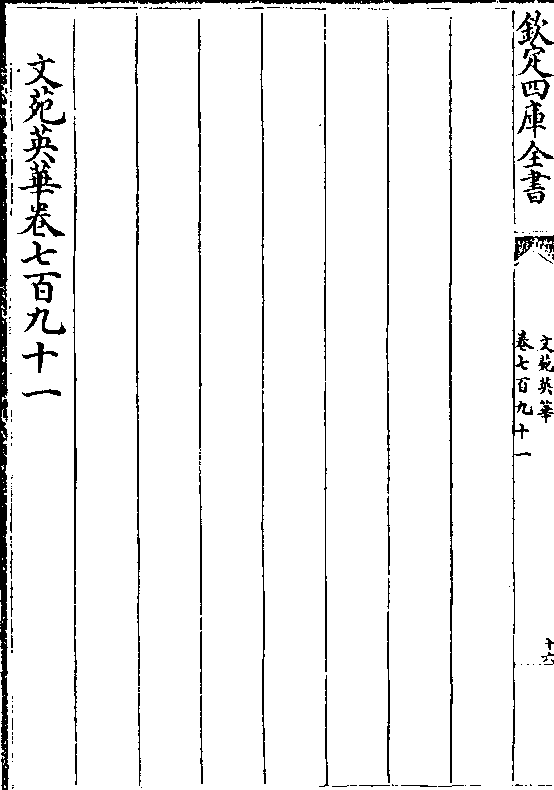 欽定四庫全書
文苑英華
卷七百九十一
十六
文苑英華卷七百九十一